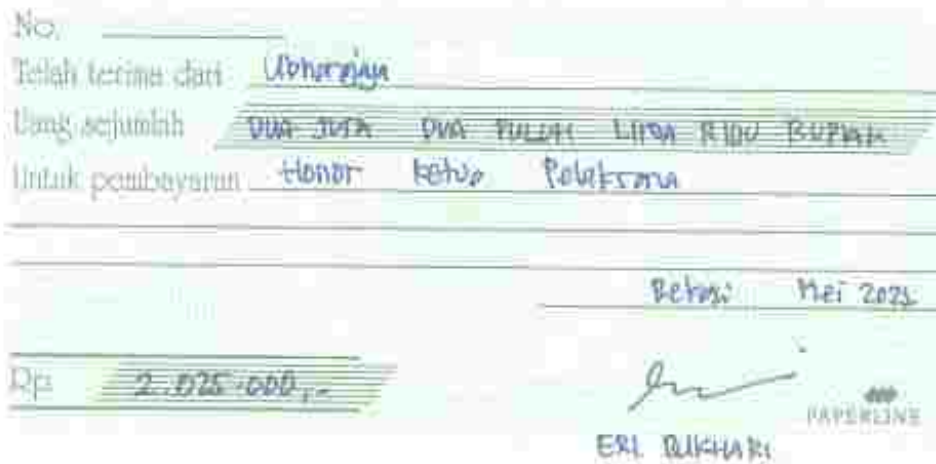 No.
Telah terima dari Ubharajaya
Uang sejumlah DUA JUTA DUA PULUH LIMA RIBU RUPIAH
Untuk pembayaran Honor Ketua Pelaksana
Bekasi Mei 2021
Rp. 2.025.000,-
PAPERLINE
ERI BUKHARI